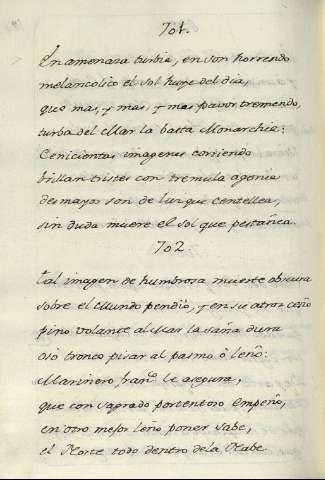 701.
En amenaza turbia, en son horrendo
melancolico el sol huye del dia,
que mas, y mas, y mas pavor tremendo,
turba del Mar la basta Monarchia:
Cenicientas imagenes corriendo
brillan tristes con tremula agonia
desmayos son de luz que centellea,
sin duda muere el sol que pestañea.
702.
Tal imagen de humbrosa muerte obscura
sobre el Mundo pendió, y en su atroz ceño
pino volante al Mar la saña dura
vio tronco pisar al pasmo ò leño:
Marinero le asegura,
que con sagrado portentoso empeño,
en otro mejor leño poner sabe,
el Norte todo dentro dela Nabe.